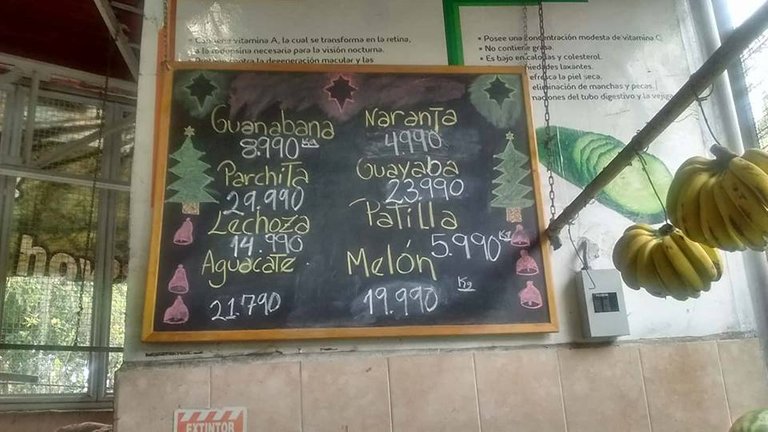 Contiene vitamina A, la cual se transforma en la retina,
la rodopsina necesaria para la visión nocturna.
contra la degeneración macular y las
• Posee una concentración modesta de vitamina C,
• No contiene grasa.
• Es bajo en calorías y colesterol.
laxantes.
refresca la piel seca.
eliminación de manchas y pecas
del tubo digestivo y la vejiga
Guanabana
8.990 Kg
Parchita
29.990
Lechoza
14.990
Aguacate
21.790
Naranja
4990
Guayaba
23.990
Patilla
5.990 Kg
Melón
19.990 Kg
EXTINTOR